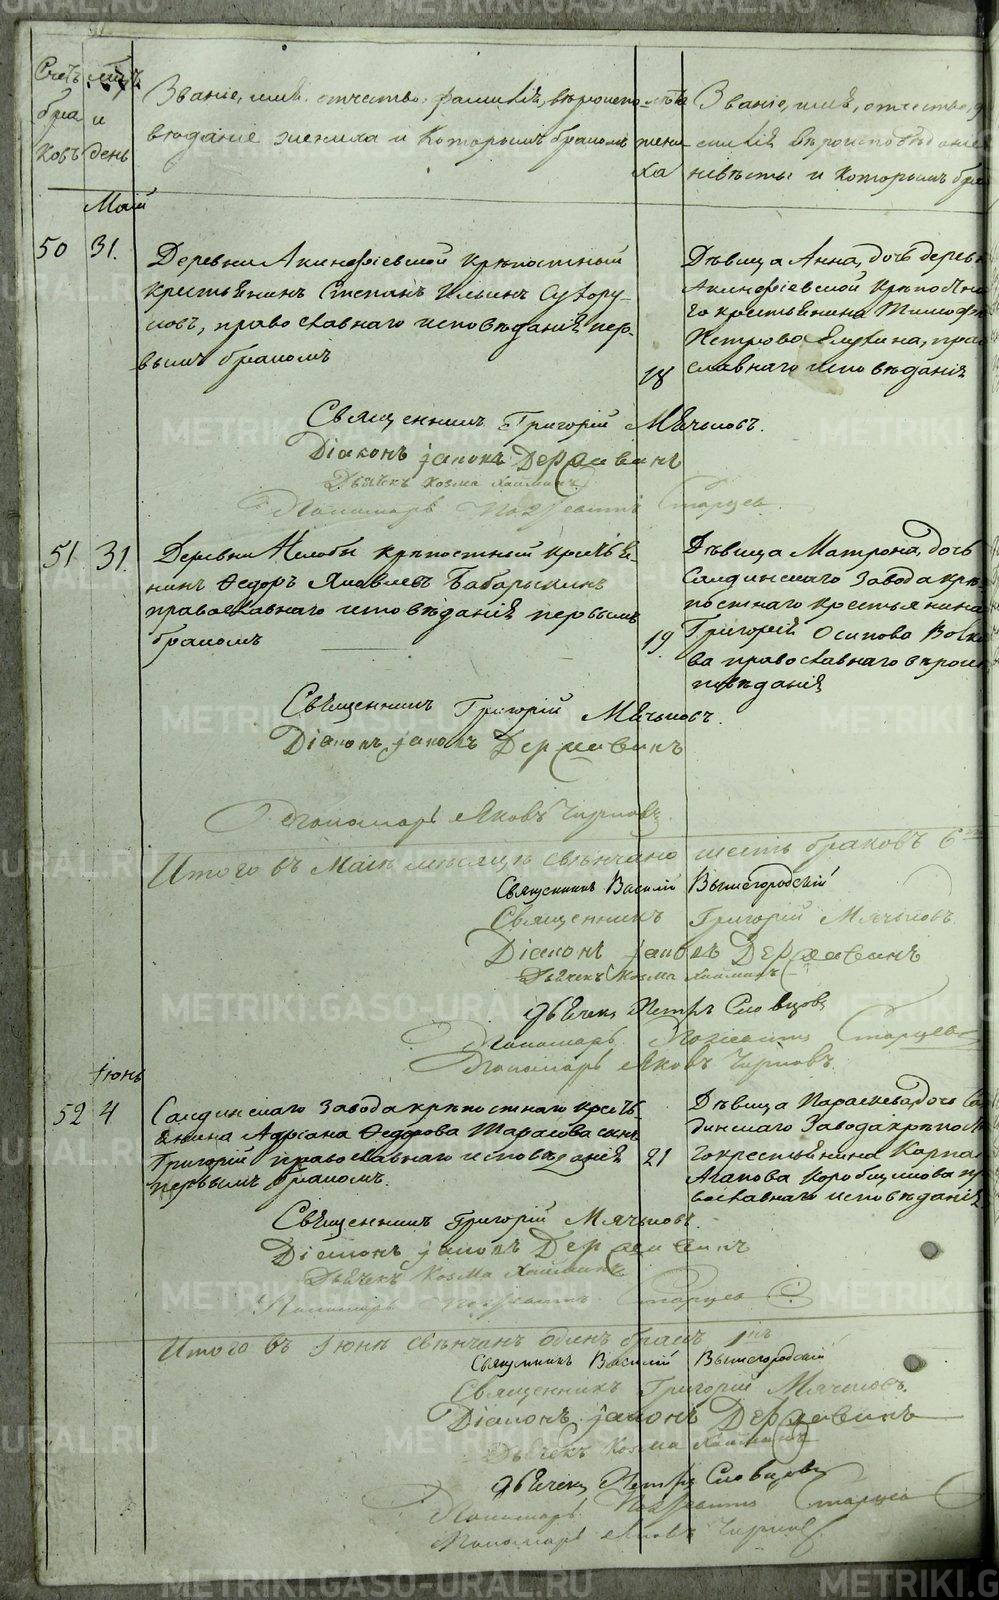 Счетъ бра ковъ
мѣц. и день
Званіе, имя, отчество, фамилія, вѣроиспо-
вѣданіе жениха и которымъ бракомъ
лѣта жени ха
Званіе, имя, отчество, ф
милія вѣроисповѣданіе
невѣсты и которымъ бра
Май
50 31.
Деревни Акинфіевской крѣпостный
крестьянинъ Стефанъ Ильинъ Сутору-
повъ, православнаго исповѣданія пер-
вымъ бракомъ
18
Дѣвица Анна, дочь дерев
Акинфіевской крѣпостна
го крестьянина Тимофе
Петрова Елукина, прав
славнаго исповѣданія
Священникъ Григорій Мячковъ.
Діаконъ Іаковъ Державинъ
Дьячекъ Козма
Пономарь Старцев
51 31.
Деревни Нелобы крѣпостный крестья-
нинъ Ѳедоръ Яковлевъ Бабарыкинъ
православнаго исповѣданія первымъ
бракомъ
19
Дѣвица Матрона, дочь
Салдинскаго завода крѣ
постнаго крестьянина
Григорій Осипова Волко
ва православнаго вѣроис
повѣданія
Священникъ Григорій Мячковъ.
Діаконъ Іаковъ Державинъ
Пономарь Яковъ Чирковъ
Итого въ Маѣ мѣсяцѣ свѣнчано шесть браковъ 6
Священникъ Василій Вышегородскій
Священникъ Григорій Мячковъ
Діаконъ Іаковъ Державинъ
Дьячекъ Козма
Дьячекъ Петръ Словцовъ
Пономарь Старцев
Пономарь Яковъ Чирковъ.
Іюнь
52 4
Салдинскаго завода крѣпостнаго кресть-
янина Адріана Ѳедорова Тарасова сынъ
Григорій православнаго исповѣданія
первымъ бракомъ.
21
Дѣвица Параскева, дочь Сал
динскаго завода крѣпост
го крестьянина Карпа
Агапова Коробщикова пр
вославнаго исповѣданія
Священникъ Григорій Мячковъ.
Діаконъ Іаковъ Державинъ
Дьячекъ Козма
Пономарь Старцев
Итого въ Іюнѣ свѣнчанъ одинъ бракъ 1нъ
Священникъ Василій Вышегородскій
Священникъ Григорій Мячковъ.
Діаконъ Іаковъ Державинъ
Дьячекъ Козма
Дьячекъ Петръ Словцовъ
Пономарь Старцев
Пономарь Яковъ Чирковъ
METRIKI.GASO-URAL.RU